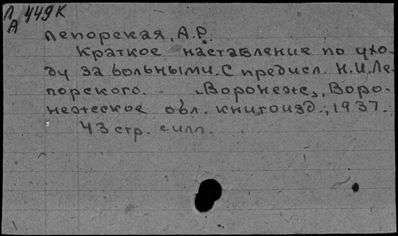 Л 449к
А
Лепорская, А.Р.
Краткое наставление по ухо-
ду за больными. С предисл. Н.И.Ле-
порского. Воронеж, Воро-
нежское обл. книгоизд., 1937.
43 стр. с илл.